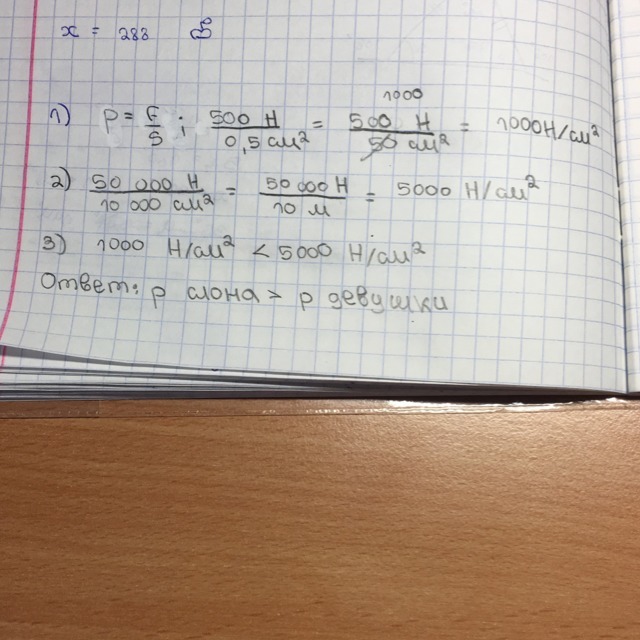 x = 288
1) p = F/S ; 500 Н / 0,5 см² = 500 Н / 50 см² = 1000 Н/см²
1000
2) 50 000 Н / 10 000 см² = 50 000 Н / 10 м = 5000 Н/см²
3) 1000 Н/см² < 5000 Н/см²
Ответ: p слона > p девушки